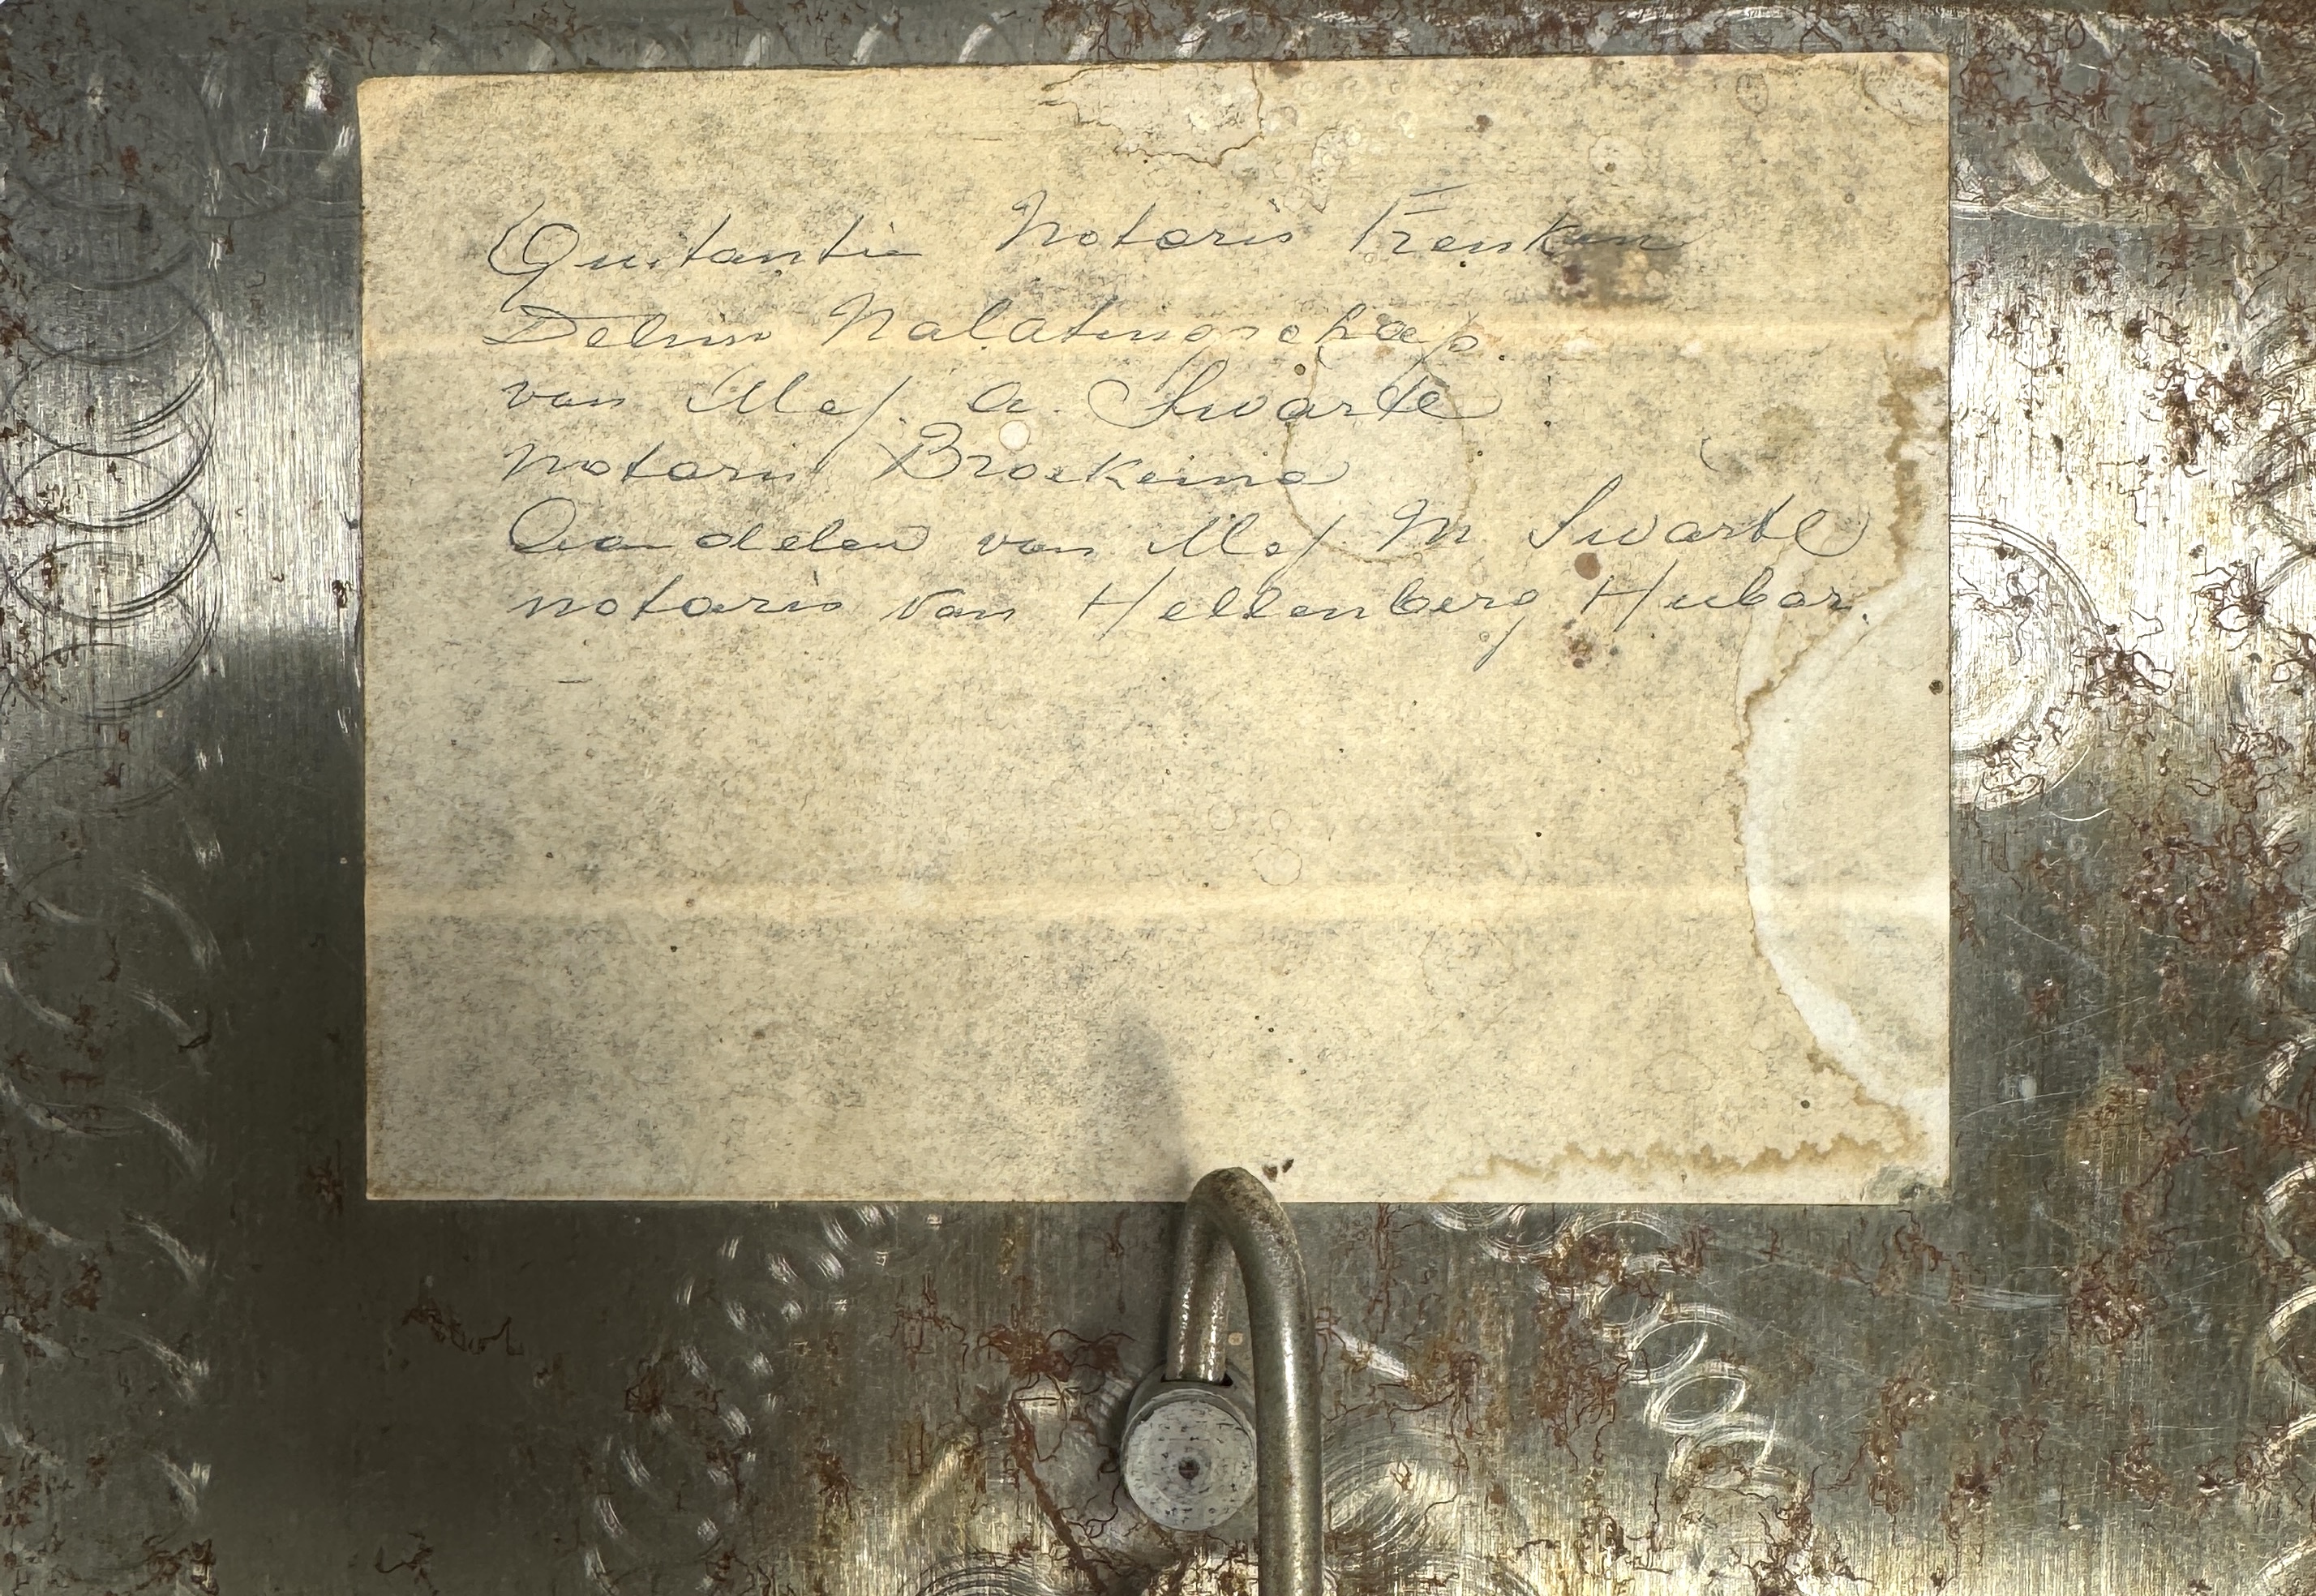 Quitantie Notaris Frenken
Delin Nalatingschap.
van Mej. A. Swarte.
notaris Broekeina
Aandelen van Mej. M. Swarte
notaris van Hellenberg Hubar.